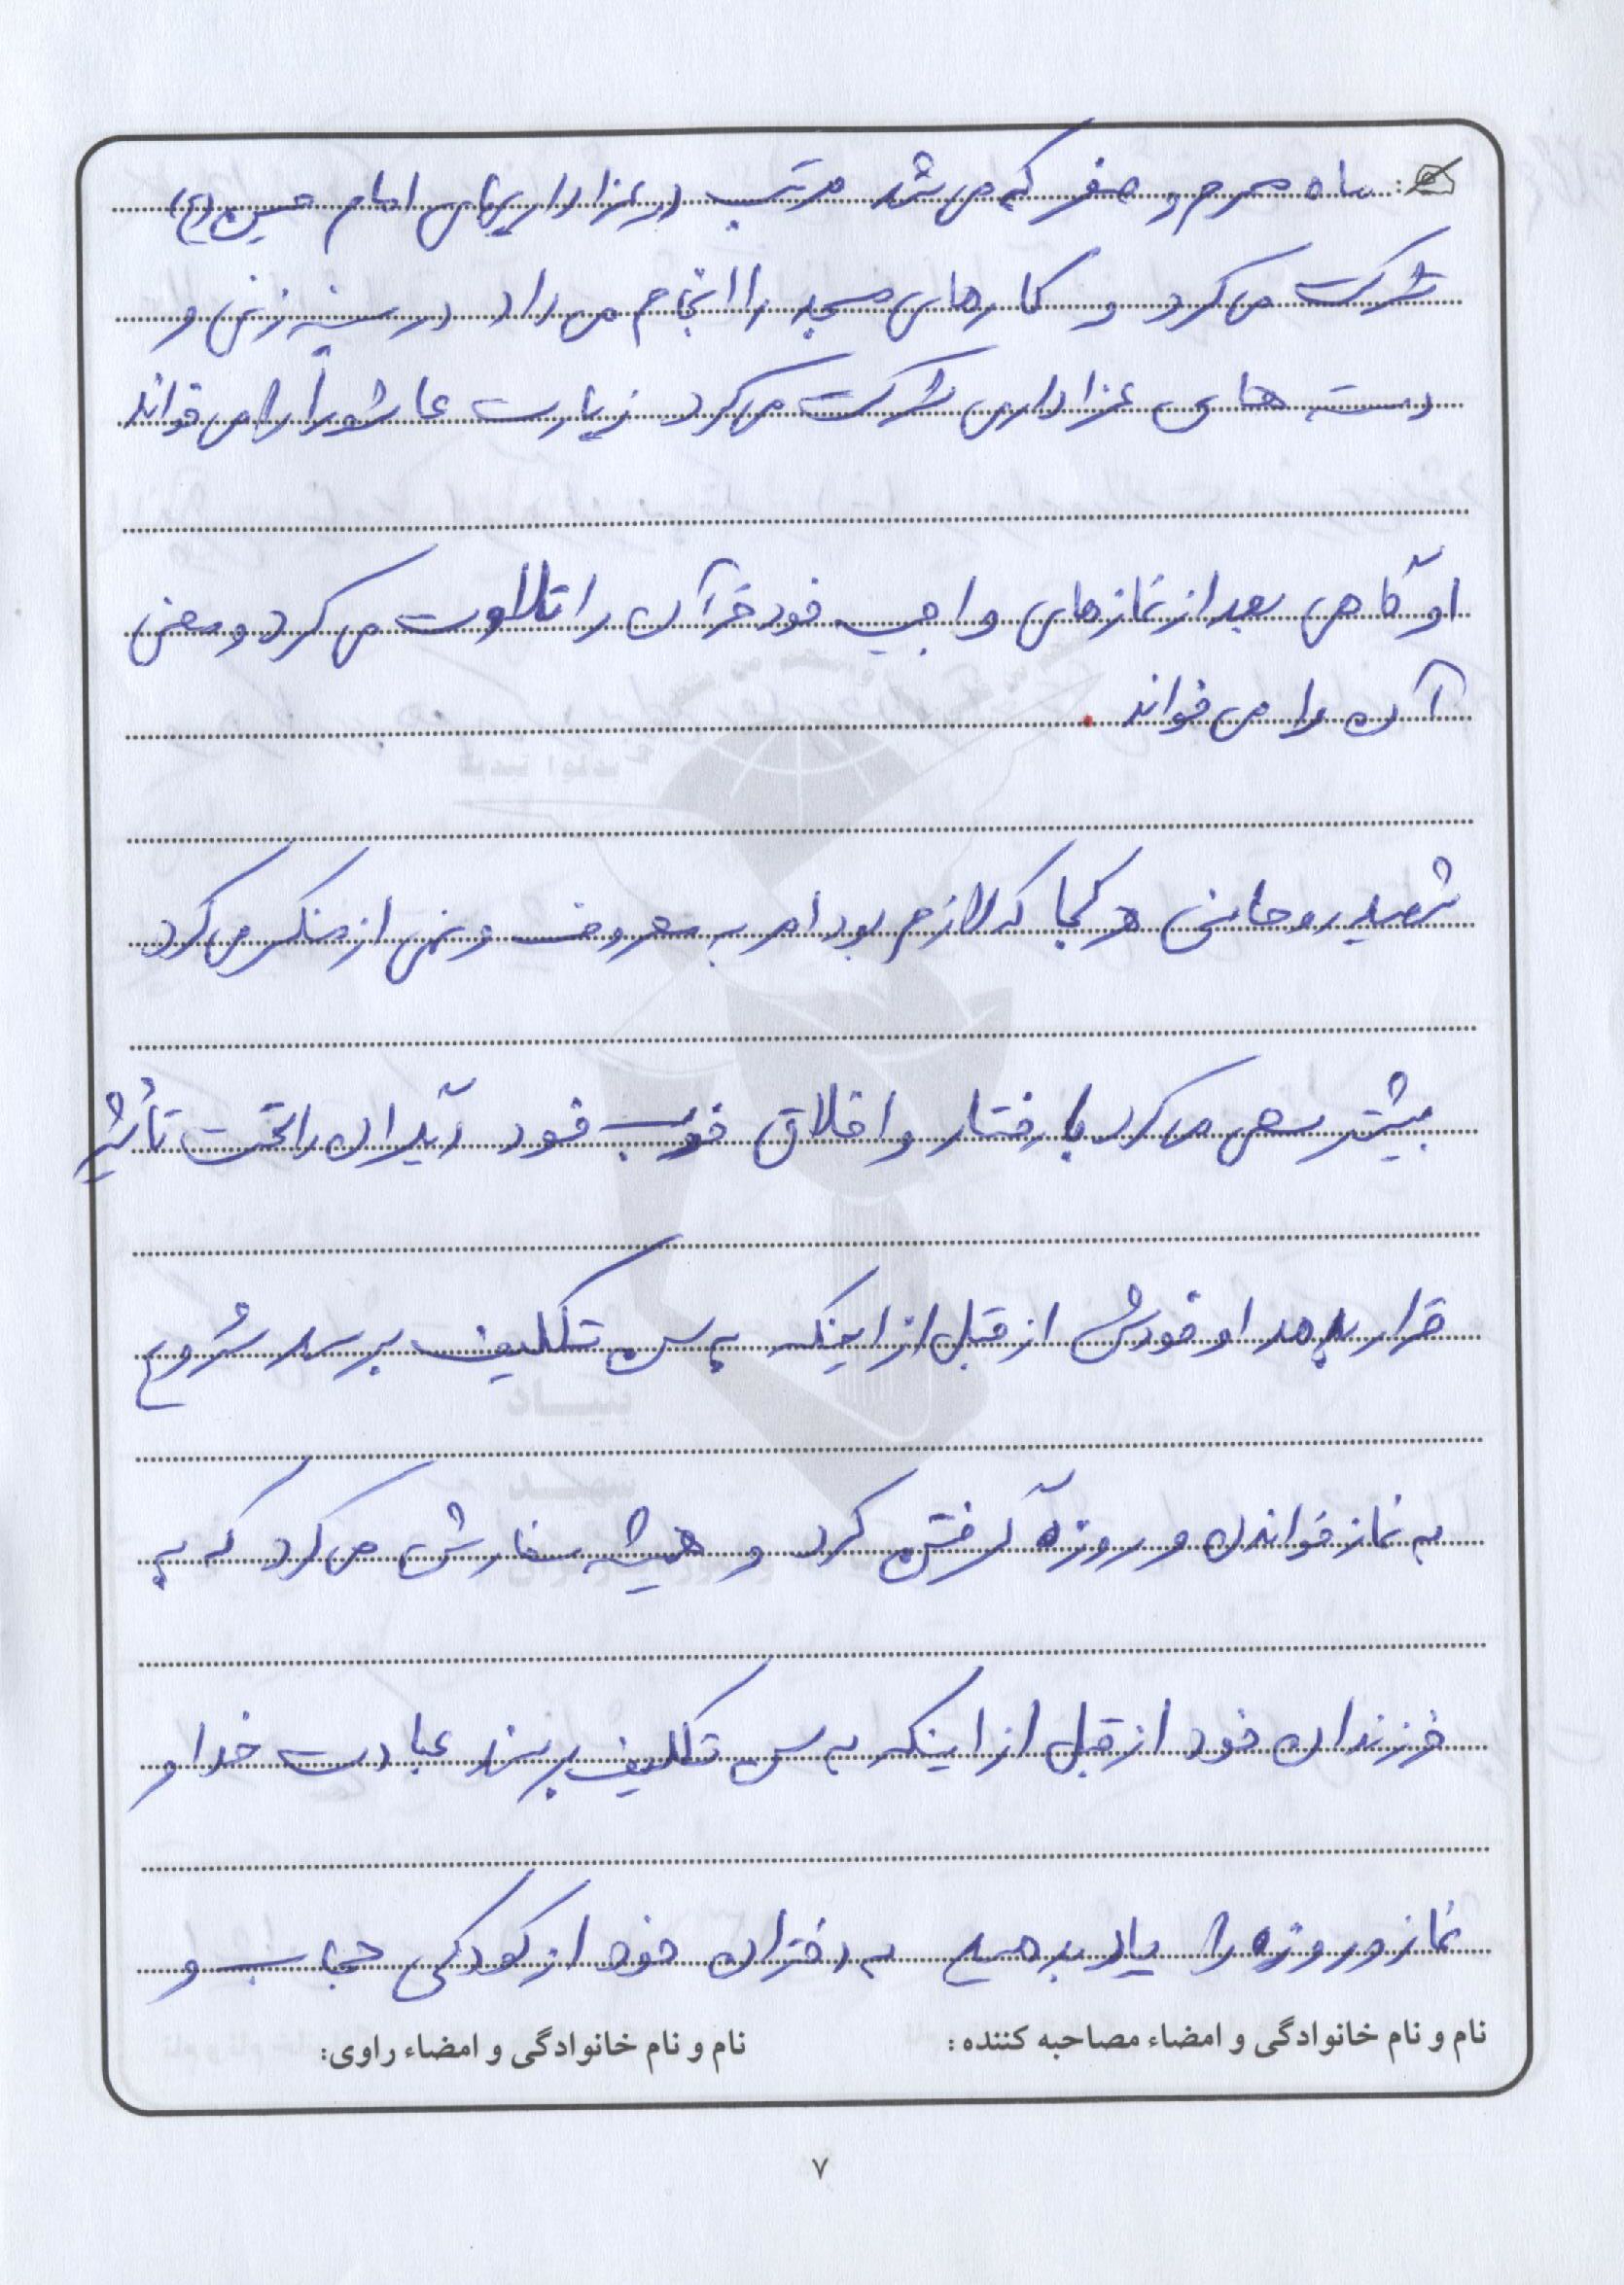 ماه محرم و صفر که می شد مرتب در عزاداریهای امام حسین (ع)
شرکت می کرد و کارهای مسجد را انجام می داد در سینه زنی و
دسته های عزاداری شرکت می کرد زیارت عاشورا را می خواند
او گاهی بعد از نمازهای واجب خود قرآن را تلاوت می کرد و معنی
آن را می خواند .
شهید روحانی هر کجا که لازم بود امر به معروف و نهی از منکر می کرد
بیشتر سعی می کرد با رفتار و اخلاق خوب خود دیگران را تحت تأثیر
قرار بدهد او خودش از قبل از اینکه به سن تکلیف برسد شروع
به نماز خواندن و روزه گرفتن کرد و همیشه سفارش می کرد که به
فرزندان خود از قبل از اینکه به سن تکلیف برسند عبادت خدا و
نماز و روزه را یاد بدهیم به دختران خود از کودکی حجاب و
نام و نام خانوادگی و امضاء مصاحبه کننده: نام و نام خانوادگی و امضاء راوی:
۷